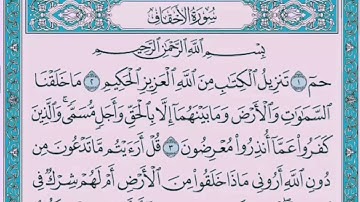 سُورَةُ الأَحْقَافِ
بِسْمِ اللَّهِ الرَّحْمَٰنِ الرَّحِيمِ
حمٓ ١ تَنزِيلُ الْكِتَابِ مِنَ اللَّهِ الْعَزِيزِ الْحَكِيمِ ٢ مَا خَلَقْنَا
السَّمَاوَاتِ وَالْأَرْضَ وَمَا بَيْنَهُمَا إِلَّا بِالْحَقِّ وَأَجَلٍ مُّسَمًّى ۚ وَالَّذِينَ
كَفَرُوا عَمَّا أُنذِرُوا مُعْرِضُونَ ٣ قُلْ أَرَأَيْتُم مَّا تَدْعُونَ مِن
دُونِ اللَّهِ أَرُونِي مَاذَا خَلَقُوا مِنَ الْأَرْضِ أَمْ لَهُمْ شِرْكٌ فِي